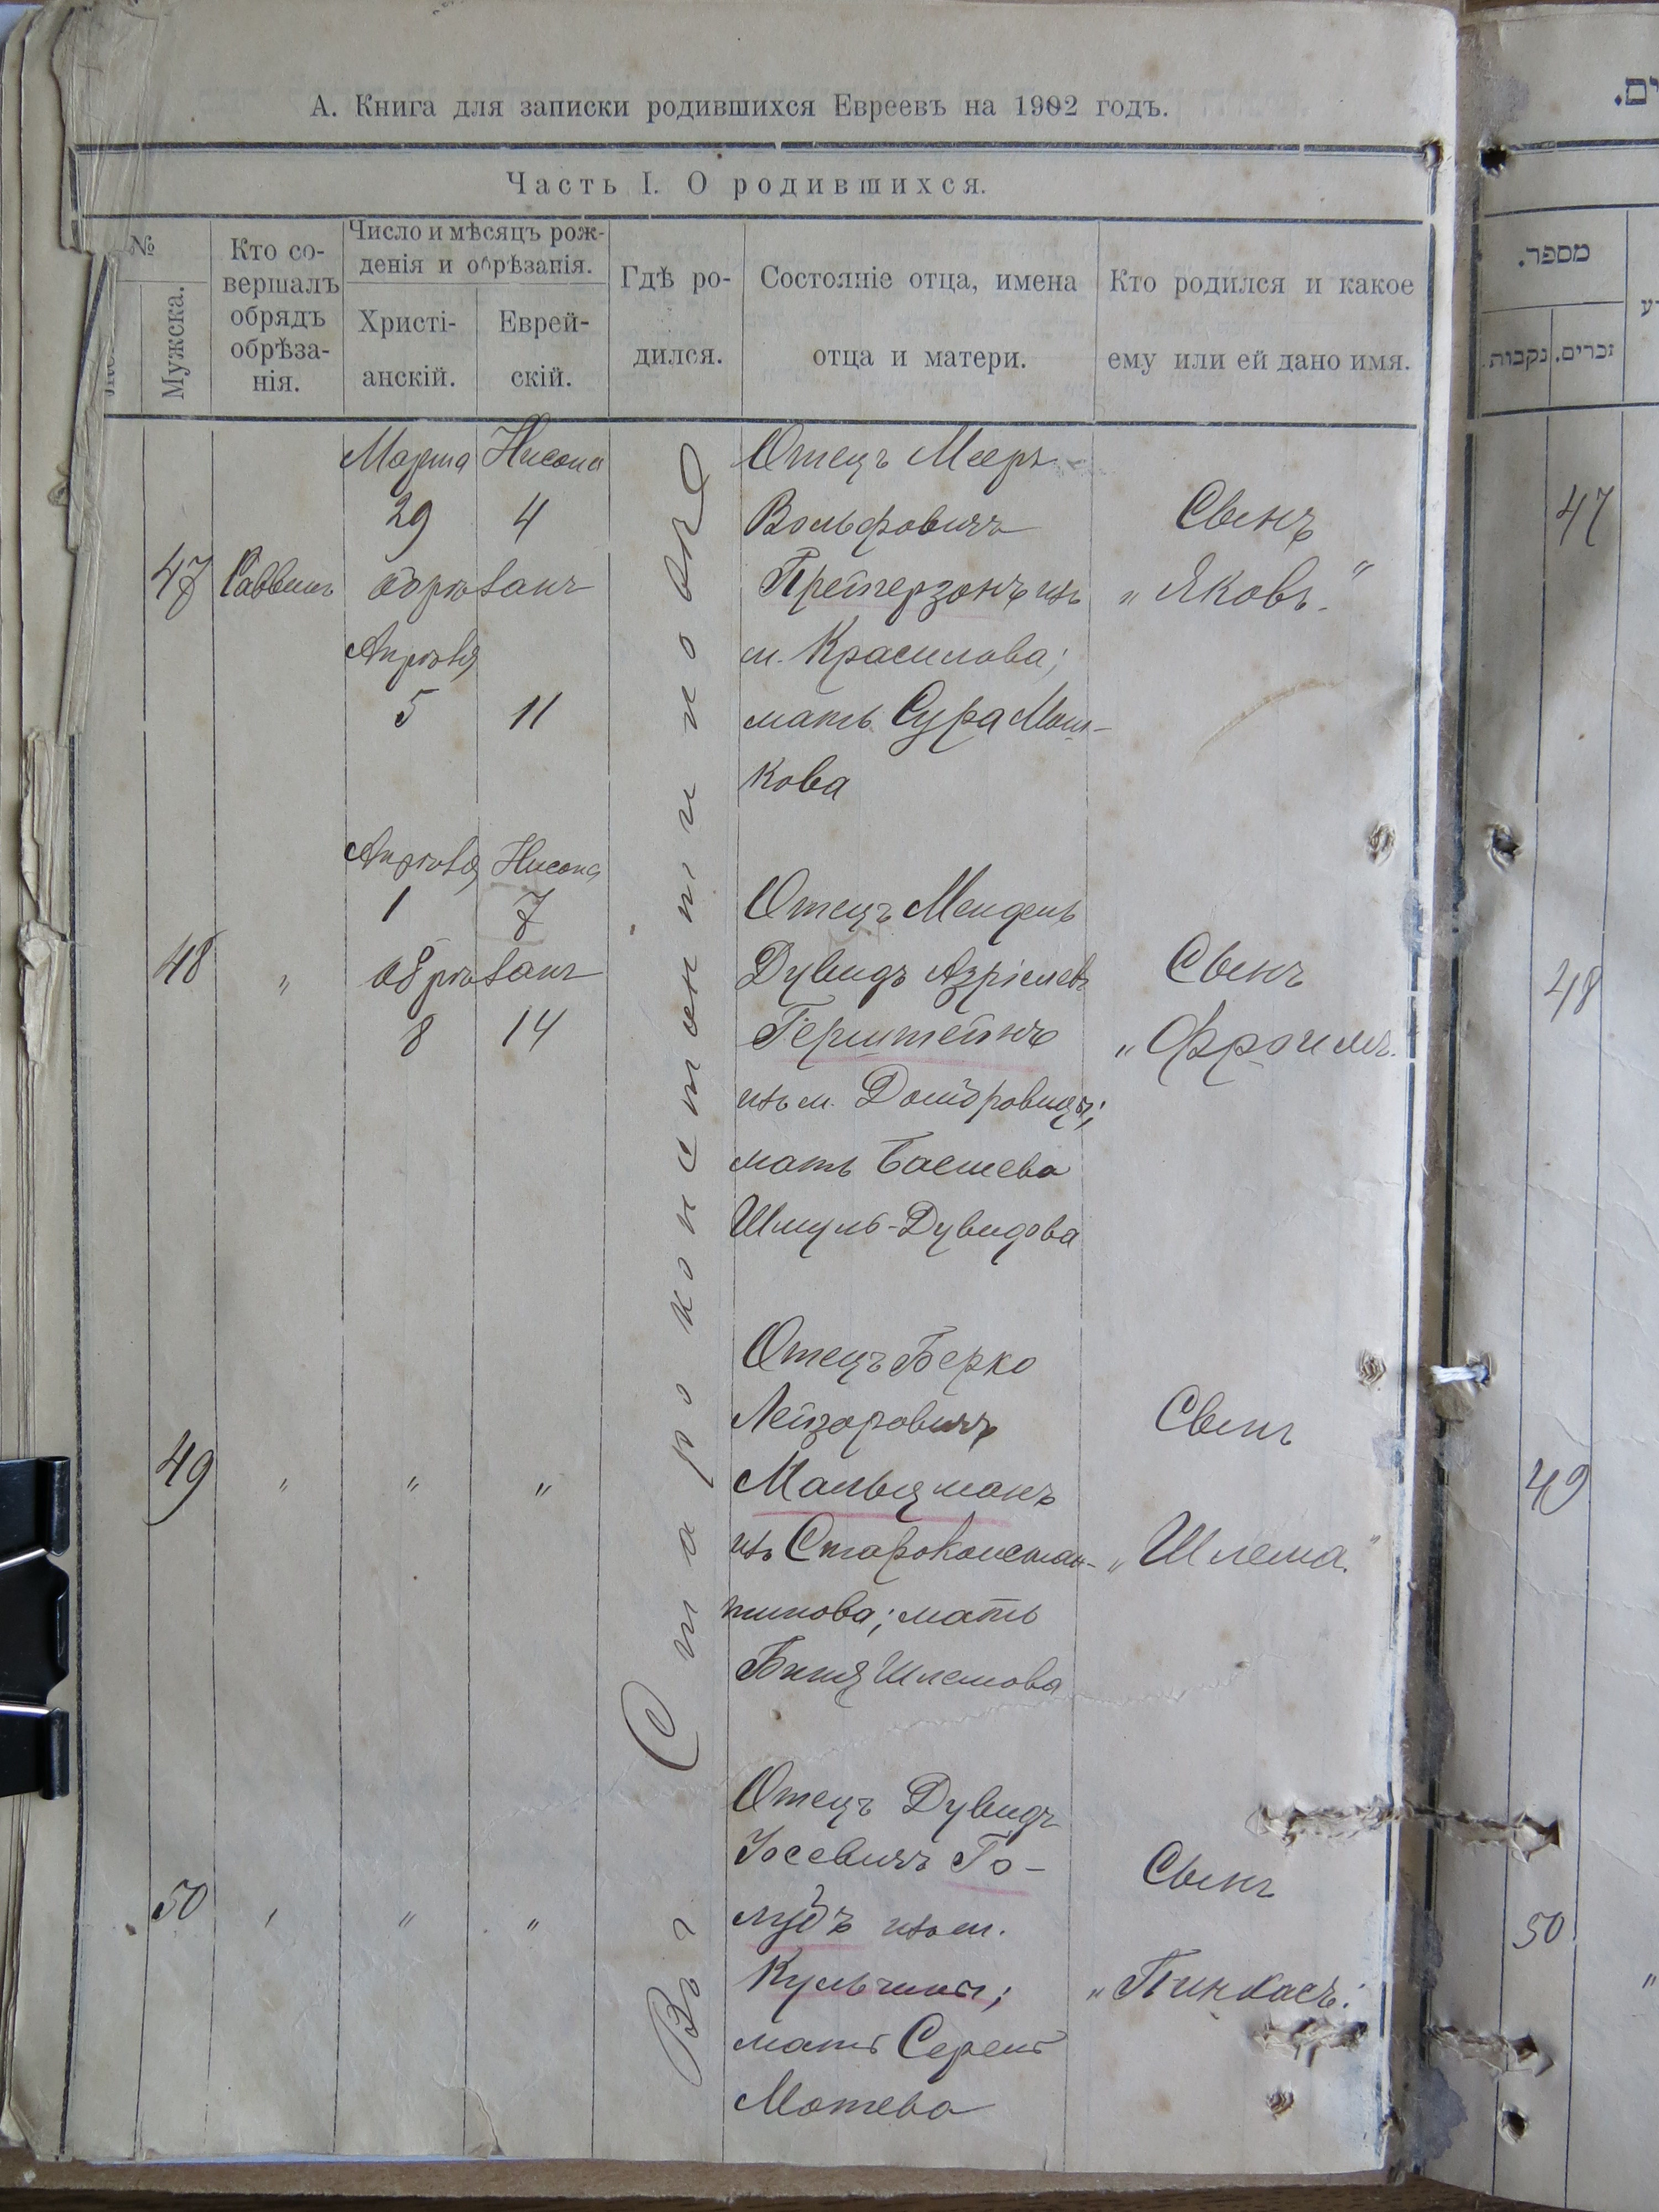 А. Книга для записки родившихся Евреевъ на 1902 годъ.
Часть I. О родившихся.
№
Мужска.
Кто со-
вершалъ
обрядъ
обрѣза-
нія.
Число и мѣсяцъ рож-
денія и обрѣзанія.
Христі-
анскій.
Еврей-
скій.
Гдѣ ро-
дился.
Состояніе отца, имена
отца и матери.
Кто родился и какое
ему или ей дано имя.
Въ Староконстантиновѣ
47
Раввинъ
Марта Нисона
29 4
обрѣзанъ
Апрѣля
5 11
Отецъ Мееръ
Вольфовичъ
Прейгерзонъ изъ
м. Красилова;
мать Сура Мош-
кова
Сынъ
„Яковъ."
48
"
Апрѣля Нисона
1 7
обрѣзанъ
8 14
Отецъ Мендель
Дувидъ Азріелевъ
Герштейнъ
изъ м. Домбровицы;
мать Басшева
Шмуль-Дувидова
Сынъ
„Фроимъ.
49
" " "
Отецъ Берко
Лейзоровичъ
Мальцманъ
изъ Староконстан-
тинова; мать
Биня Шлемова
Сынъ
„Шлема."
50
" " "
Отецъ Дувидъ
Іосевичъ Го-
лубъ изъ м.
Кульчинъ;
мать Серель
Мотева
Сынъ
„Пинкасъ."
ים.
מספר.
זכרים.
נקבות.
47
48
49
50